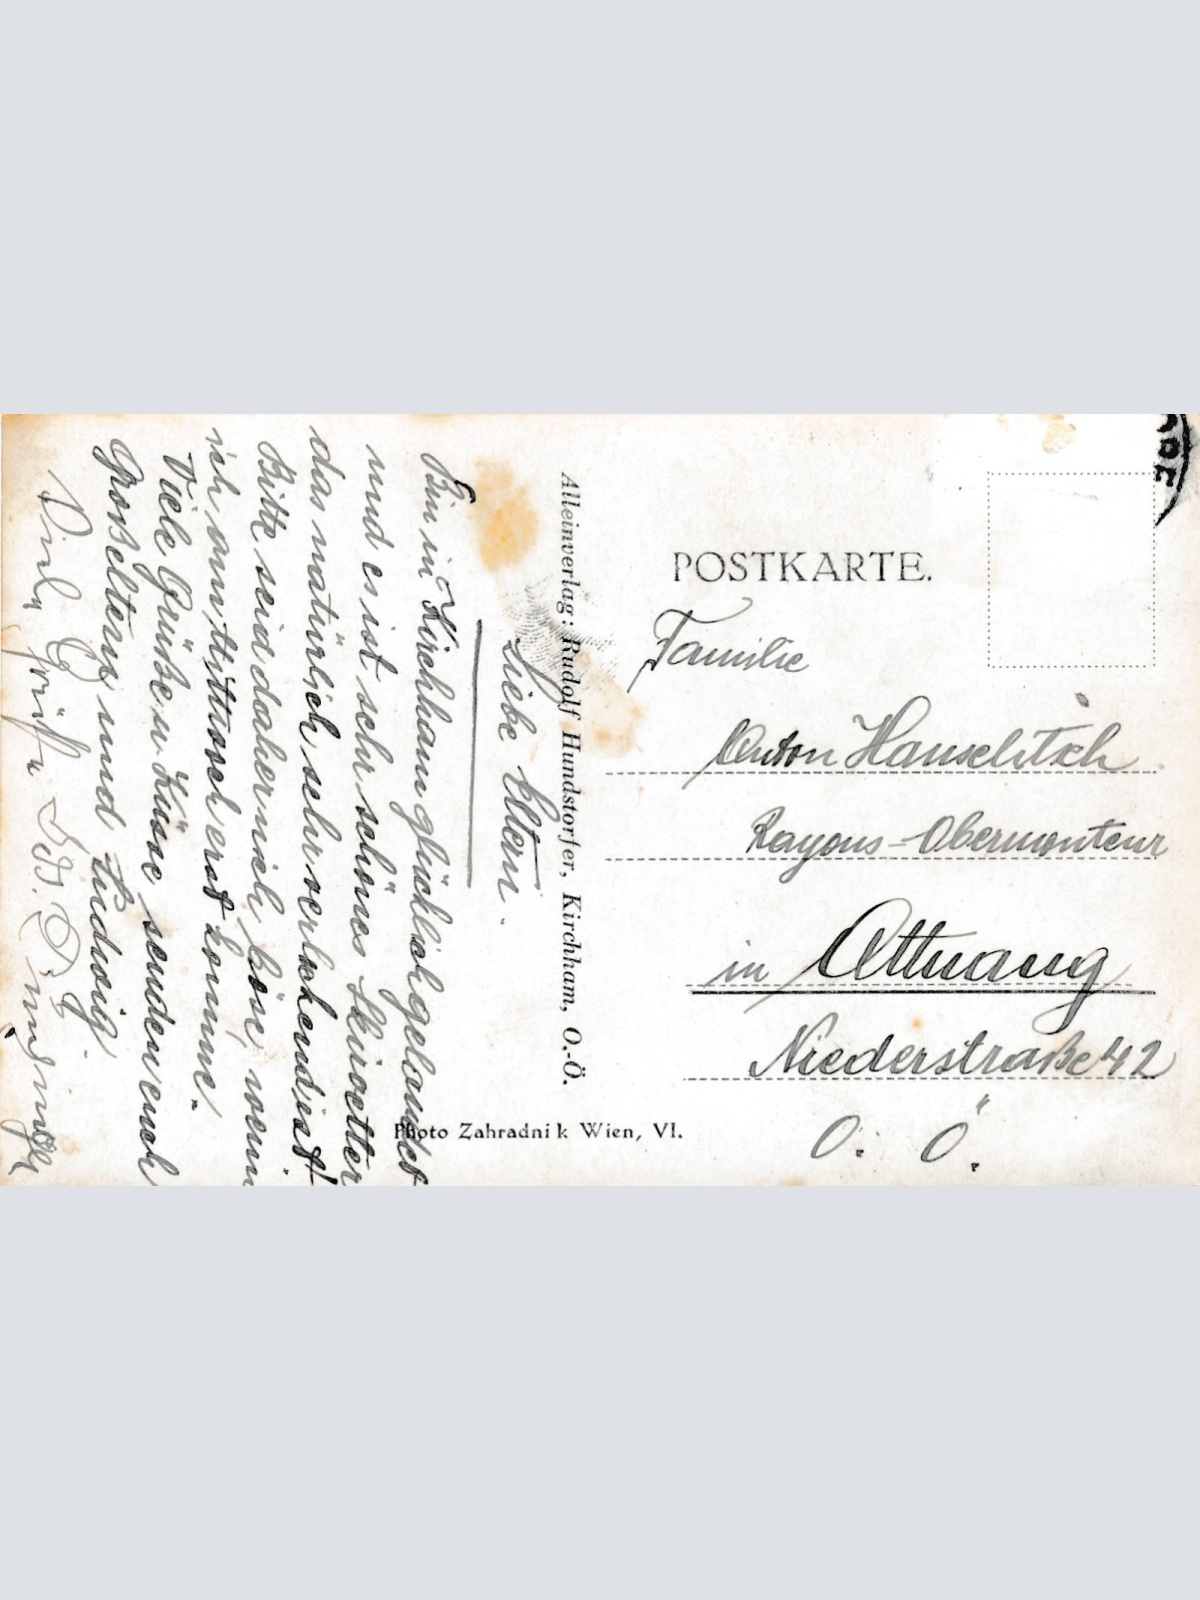 Liebe Eltern.
Bin in Kirchham glücklich gelandet
und es ist sehr schönes Skiwetter
das natürlich sehr verlockend ist!
Bitte seid daher nich böse, wenn
ich am Mittwoch erst komme.
Viele Grüße u. Küsse senden euch
Großeltern und Ludwig.
Viele Grüße
Alleinverlag: Rudolf Hundstorfer, Kirchham, O.-Ö.
Photo Zahradnik Wien, VI.
POSTKARTE.
Familie
Anton Hauschitsch
Rayons-Obermonteur
in Attnang
Niederstraße 42
O. Ö.